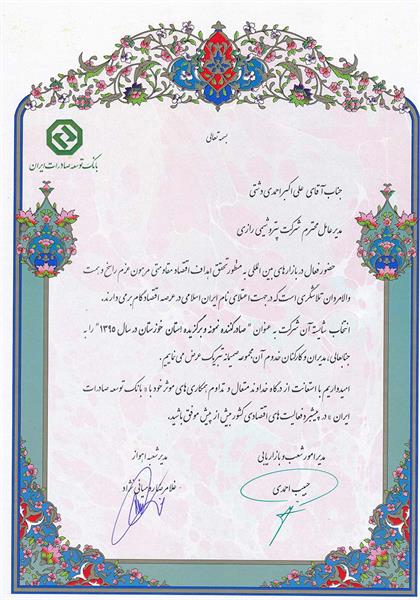 بسمه تعالی
بانک توسعه صادرات ایران
جناب آقای علی اکبر احمدی دشتی
مدیرعامل محترم شرکت پتروشیمی رازی
حضور فعال در بازارهای بین المللی به منظور تحقق اهداف اقتصاد مقاومتی مرهون عزم راسخ و همت
والامردان تلاشگری است که در جهت اعتلای نام ایران اسلامی در عرصه اقتصاد گام برمی دارند.
انتخاب شایسته آن شرکت به عنوان "صادرکننده نمونه و برگزیده استان خوزستان در سال ۱۳۹۵" را به
جنابعالی، مدیران و کارکنان خدوم آن مجموعه صمیمانه تبریک عرض می نماییم.
امیدواریم با استعانت از درگاه خداوند متعال و تداوم همکاری های موثر خود با «بانک توسعه صادرات
ایران» در پیشبرد فعالیت های اقتصادی کشور بیش از پیش موفق باشید.
مدیر امور شعب و بازاریابی
حبیب احمدی
مدیر شعبه اهواز
غلامرضا نژاد